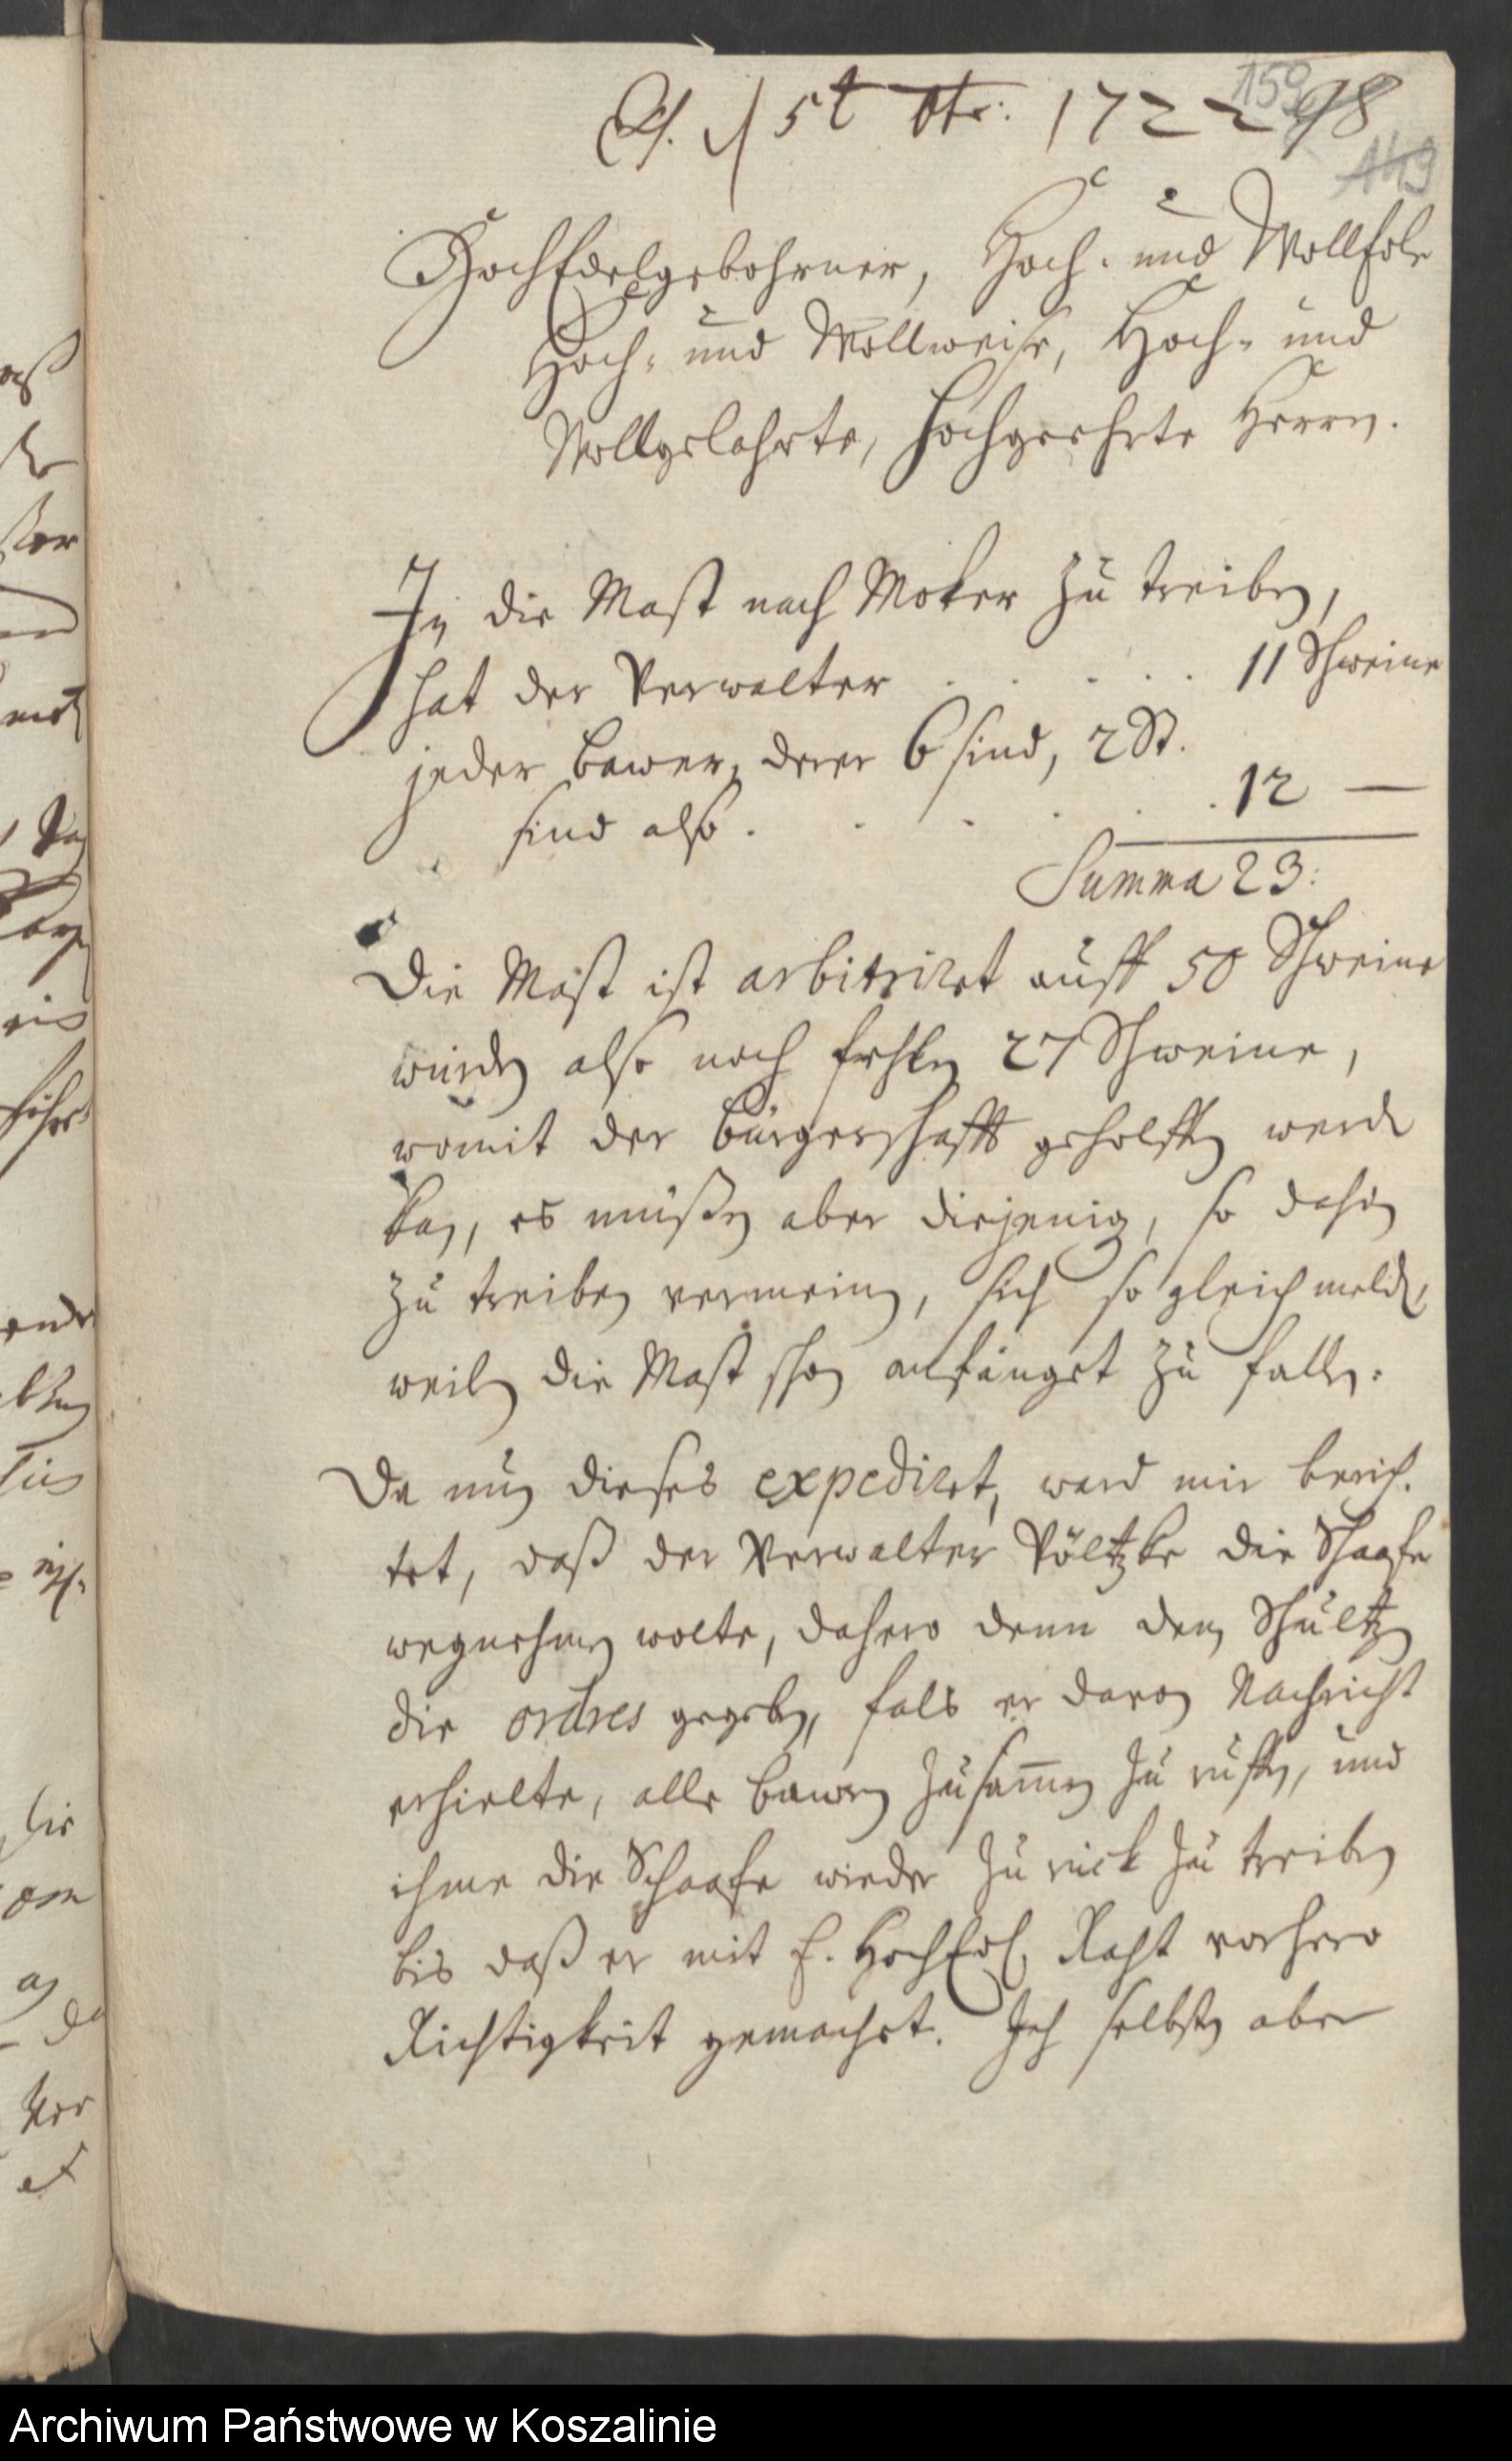 159 98
149
d 5t 8tr: 1722
HochEdelgebohrner, Hoch- und WollEdle
Hoch- und Wollweise, Hoch- und
Wollgelahrte, Hochgeehrte Herrn.
In die Mast nach Moker zu treiben,
hat der Verwalter . . . . . 11 Schweine
jeder Bawer, derer 6 sind, 2 St.
sind also . . . . . 12 —
Summa 23:
Die Mast ist arbitriret auff 50 Schweine
würden also noch fehlen 27 Schweine,
womit der Bürgerschafft geholffen werden
kan, es müßen aber diejenigen, so dahin
zu treiben vermeinen, sich so gleich melden,
weilen die Mast schon anfänget zu fallen.
Da nun dieses expediret, ward mir berich-
tet, daß der Verwalter Völtzke die Schaafe
wegnehmen wolte, dahero denn dem Schultzen
die ordres gegeben, fals er davon Nachricht
erhielte, alle Bawren zusammen zu ruffen, und
ihme die Schaafe wieder zu rück zu treiben
bis daß er mit E. HochEdl. Raht vorhero
Richtigkeit gemachet. Ich selbsten aber
Archiwum Państwowe w Koszalinie